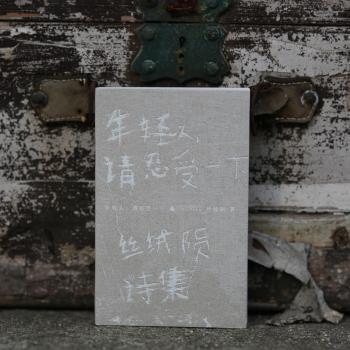 年轻人,
请忍受一下
丝绒陨
诗集